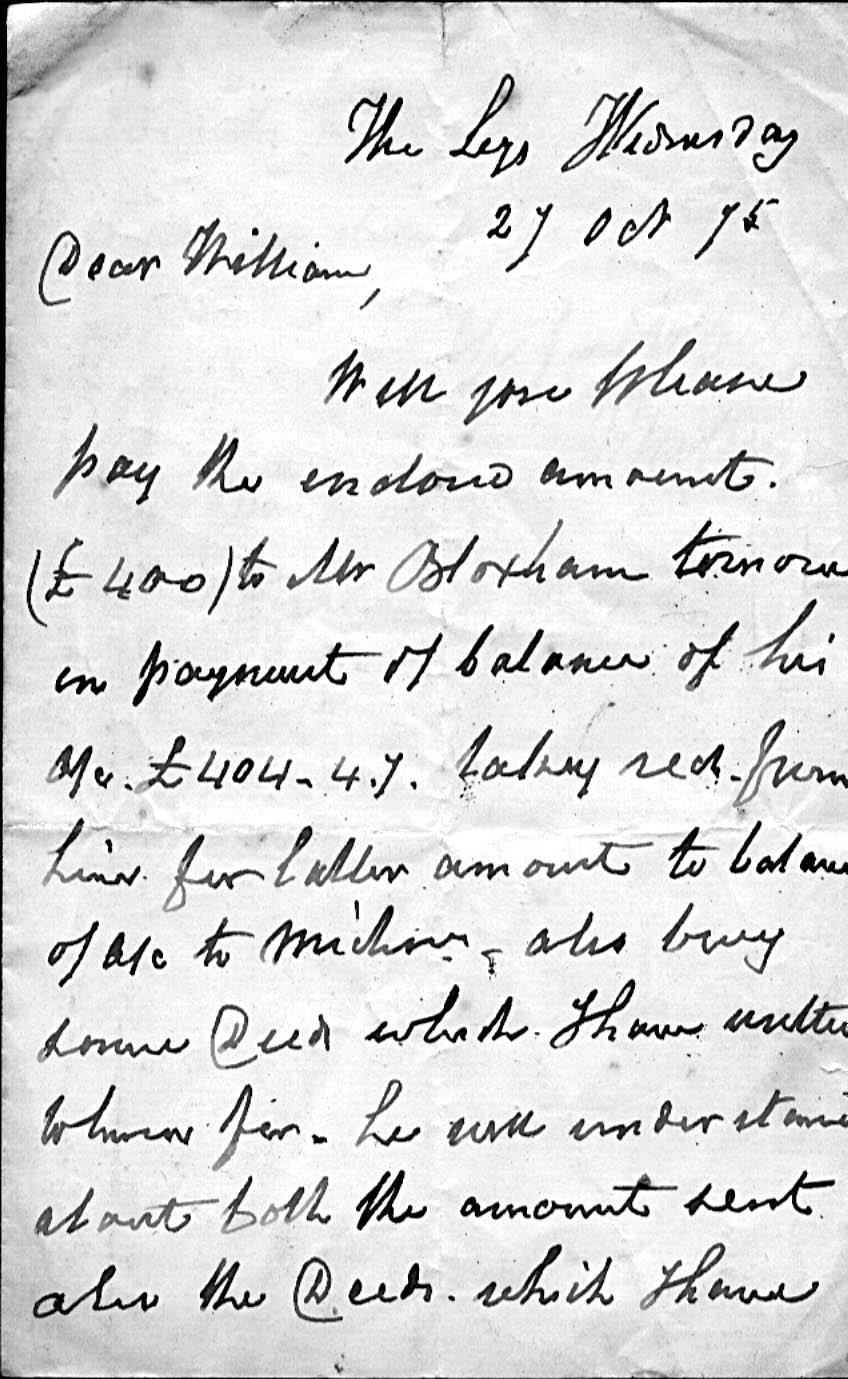 The Leys Wednesday
27 Oct 75
Dear William,
Will you please
pay the enclosed amount.
(£400) to Mr Bloxham tomorrow
in payment of balance of his
a/c. £404-4.7. taking rect. from
him for latter amount to balance
of a/c to - also bring
some Deeds which I have written
him for - he will understand
about both the amount sent
also the Deeds. which I have